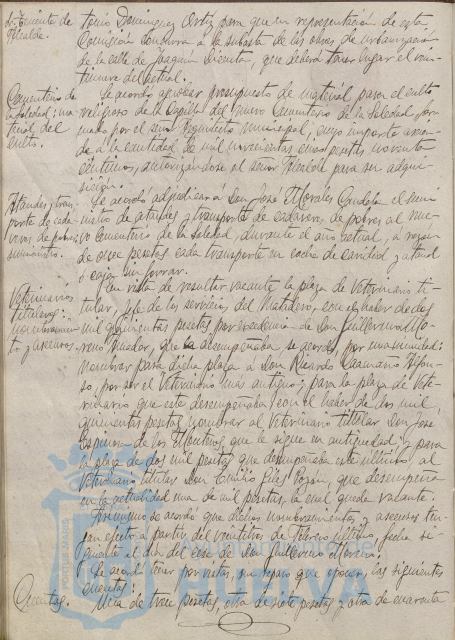 Sr. Teniente de
Alcalde.
tonio Dominguez Ortiz para que en representación de esta
Comisión concurra a la subasta de las obras de urbanización
de la calle de Joaquin Dicenta, que deberá tener lugar el
del actual.
Cementerio de
la Soledad: ma
terial del
culto.
Se acordó aprobar presupuesto de material para el culto
religioso de la Capilla del nuevo Cementerio de la Soledad for
mado por el señor Arquitecto municipal, cuyo importe ascien
de a la cantidad de mil novecientas once pesetas noventa
céntimos, autorizándose al señor Alcalde para su adqui
sición.
Ataudes y trans
porte de cada
veres de pobres:
suministro.
Se acordó adjudicar a Don José Morales Candela el sumi
nistro de ataudes y transporte de cadaver, de pobres al nue
vo Cementerio de la Soledad, durante el año actual, a razon
de once pesetas cada transporte en coche de caridad y ataud
o caja sin forrar.
Veterinarios
titulares:
nombramien
to y ascensos.
En vista de resultar vacante la plaza de Veterinario ti
tular, Jefe de los servicios del Matadero, con el haber de dos
mil quinientas pesetas por excedencia de Don Guillermo Mo
reno Amador, que la desempeñaba, se acordó por unanimidad:
Nombrar para dicha plaza a Don Ricardo Caamaño Alfon
so, por ser el Veterinario mas antiguo; para la plaza de Vete
rinario que este desempeñaba, con el haber de dos mil
quinientas pesetas, nombrar al Veterinario titular Don José
Espinosa de los Monteros, que le sigue en antigüedad; y para
la plaza de dos mil pesetas que desempeñaba este último, al
Veterinario titular Don Emilio Giles Pozón, que desempeña
en la actualidad una de mil pesetas, la cual queda vacante.
Asimismo se acordó que dichos nombramientos y ascensos ten
gan efecto a partir del veintitres de Febrero último, fecha si
guiente al dia del cese de Don Guillermo Moreno.
Se acordó tener por vistas, sin reparo que oponer, las siguientes
cuentas:
Cuentas.
Una de trece pesetas, otra de siete pesetas y otra de cuarenta
PORTUS MARIS
HUELVA